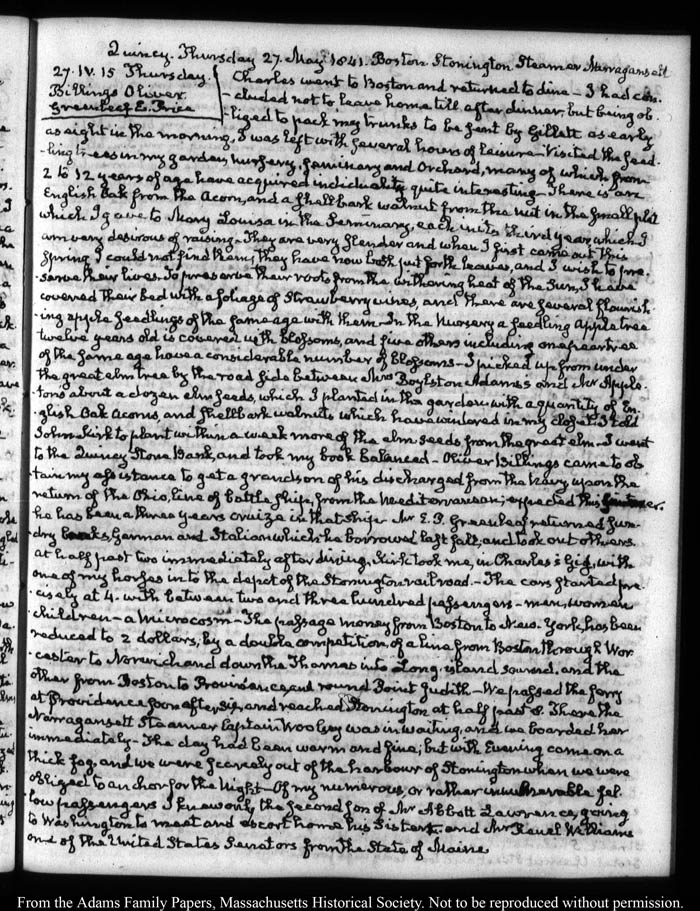 Quincy. Thursday 27. May 1841. Boston. Stonington Steamer Narragansett
27. IV. 15 Thursday.
Billings Oliver
Greenleaf E. Price
Charles went to Boston and returned to dine – I had con-
cluded not to leave home till after dinner, but being ob-
liged to pack my trunks to be sent by Gillett as early
as eight in the morning, I was left with several hours of leisure – Visited the seed-
ling trees in my garden, nursery, seminary and Orchard, many of which from
2 to 12 years of age have acquired individuality quite interesting – There is an
English Oak from the Acorn, and a shellbark walnut from the nut in the small plot
which I gave to Mary Louisa in the Seminary, each in its third year, which I
am very desirous of raising – They are very slender and when I first came out this
Spring I could not find them; they have now both put forth leaves, and I wish to pre-
serve their lives. To preserve their roots from the withering heat of the Sun, I have
covered their bed with a foliage of Strawberry vines, and there are several flourish-
ing apple seedlings of the same age with them – In the Nursery a seedling Apple tree
twelve years old is covered with blossoms, and five others including one pear tree
of the same age have a considerable number of blossoms – I picked up from under
the great elm tree by the road side between Mrs Boylston Adams's and Mr Apple-
tons about a dozen elm seeds, which I planted in the garden with a quantity of En-
glish Oak Acorns, and shellbark walnuts which have wintered in my closet. I told
John Kirk to plant within a week more of the elm seeds from the great elm – I went
to the Quincy Stone Bank, and took my book balanced – Oliver Billings came to ob-
tain my assistance to get a grandson of his discharged from the Navy upon the
return of the Ohio, line of battle ship, from the Mediterranean; expected this summer.
he has been a three years cruize in that ship. Mr E. P. Greenleaf returned sun-
dry books, German and Italian which he borrowed last fall, and took out others.
at half past two immediately after dining, Kirk took me, in Charles's Gig, with
one of my horses in to the depot of the Stonington railroad. – The cars started pre-
cisely at 4. with between two and three hundred passengers – men, women
children – a microcosm – The passage money from Boston to New-York, has been
reduced to 2 dollars, by a double competition, of a line from Boston through Wor-
cester to Norwich and down the Thames into Long-island sound. and the
other from Boston to Providence and round Point Judith – We passed the ferry
at Providence soon after six, and reached Stonington at half past 8. There the
Narragansett Steamer Captain Woolsey was in waiting, and we boarded her
immediately – The day had been warm and fine; but with Evening came on a
thick fog, and we were scarcely out of the harbour of Stonington when we were
obliged to anchor for the Night – Of my numerous, or rather innumerable fel-
low passengers I knew only the second son of Mr Abbott Lawrence, going
to Washington to meet and escort home his Sister. and Mr Reuel Williams
one of the United States Senators from the State of Maine
From the Adams Family Papers, Massachusetts Historical Society. Not to be reproduced without permission.